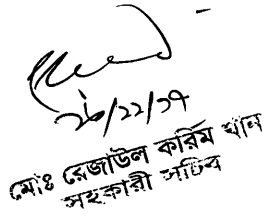 ২৬/১১/১৭
মোঃ রেজাউল করিম খান
সহকারী সচিব